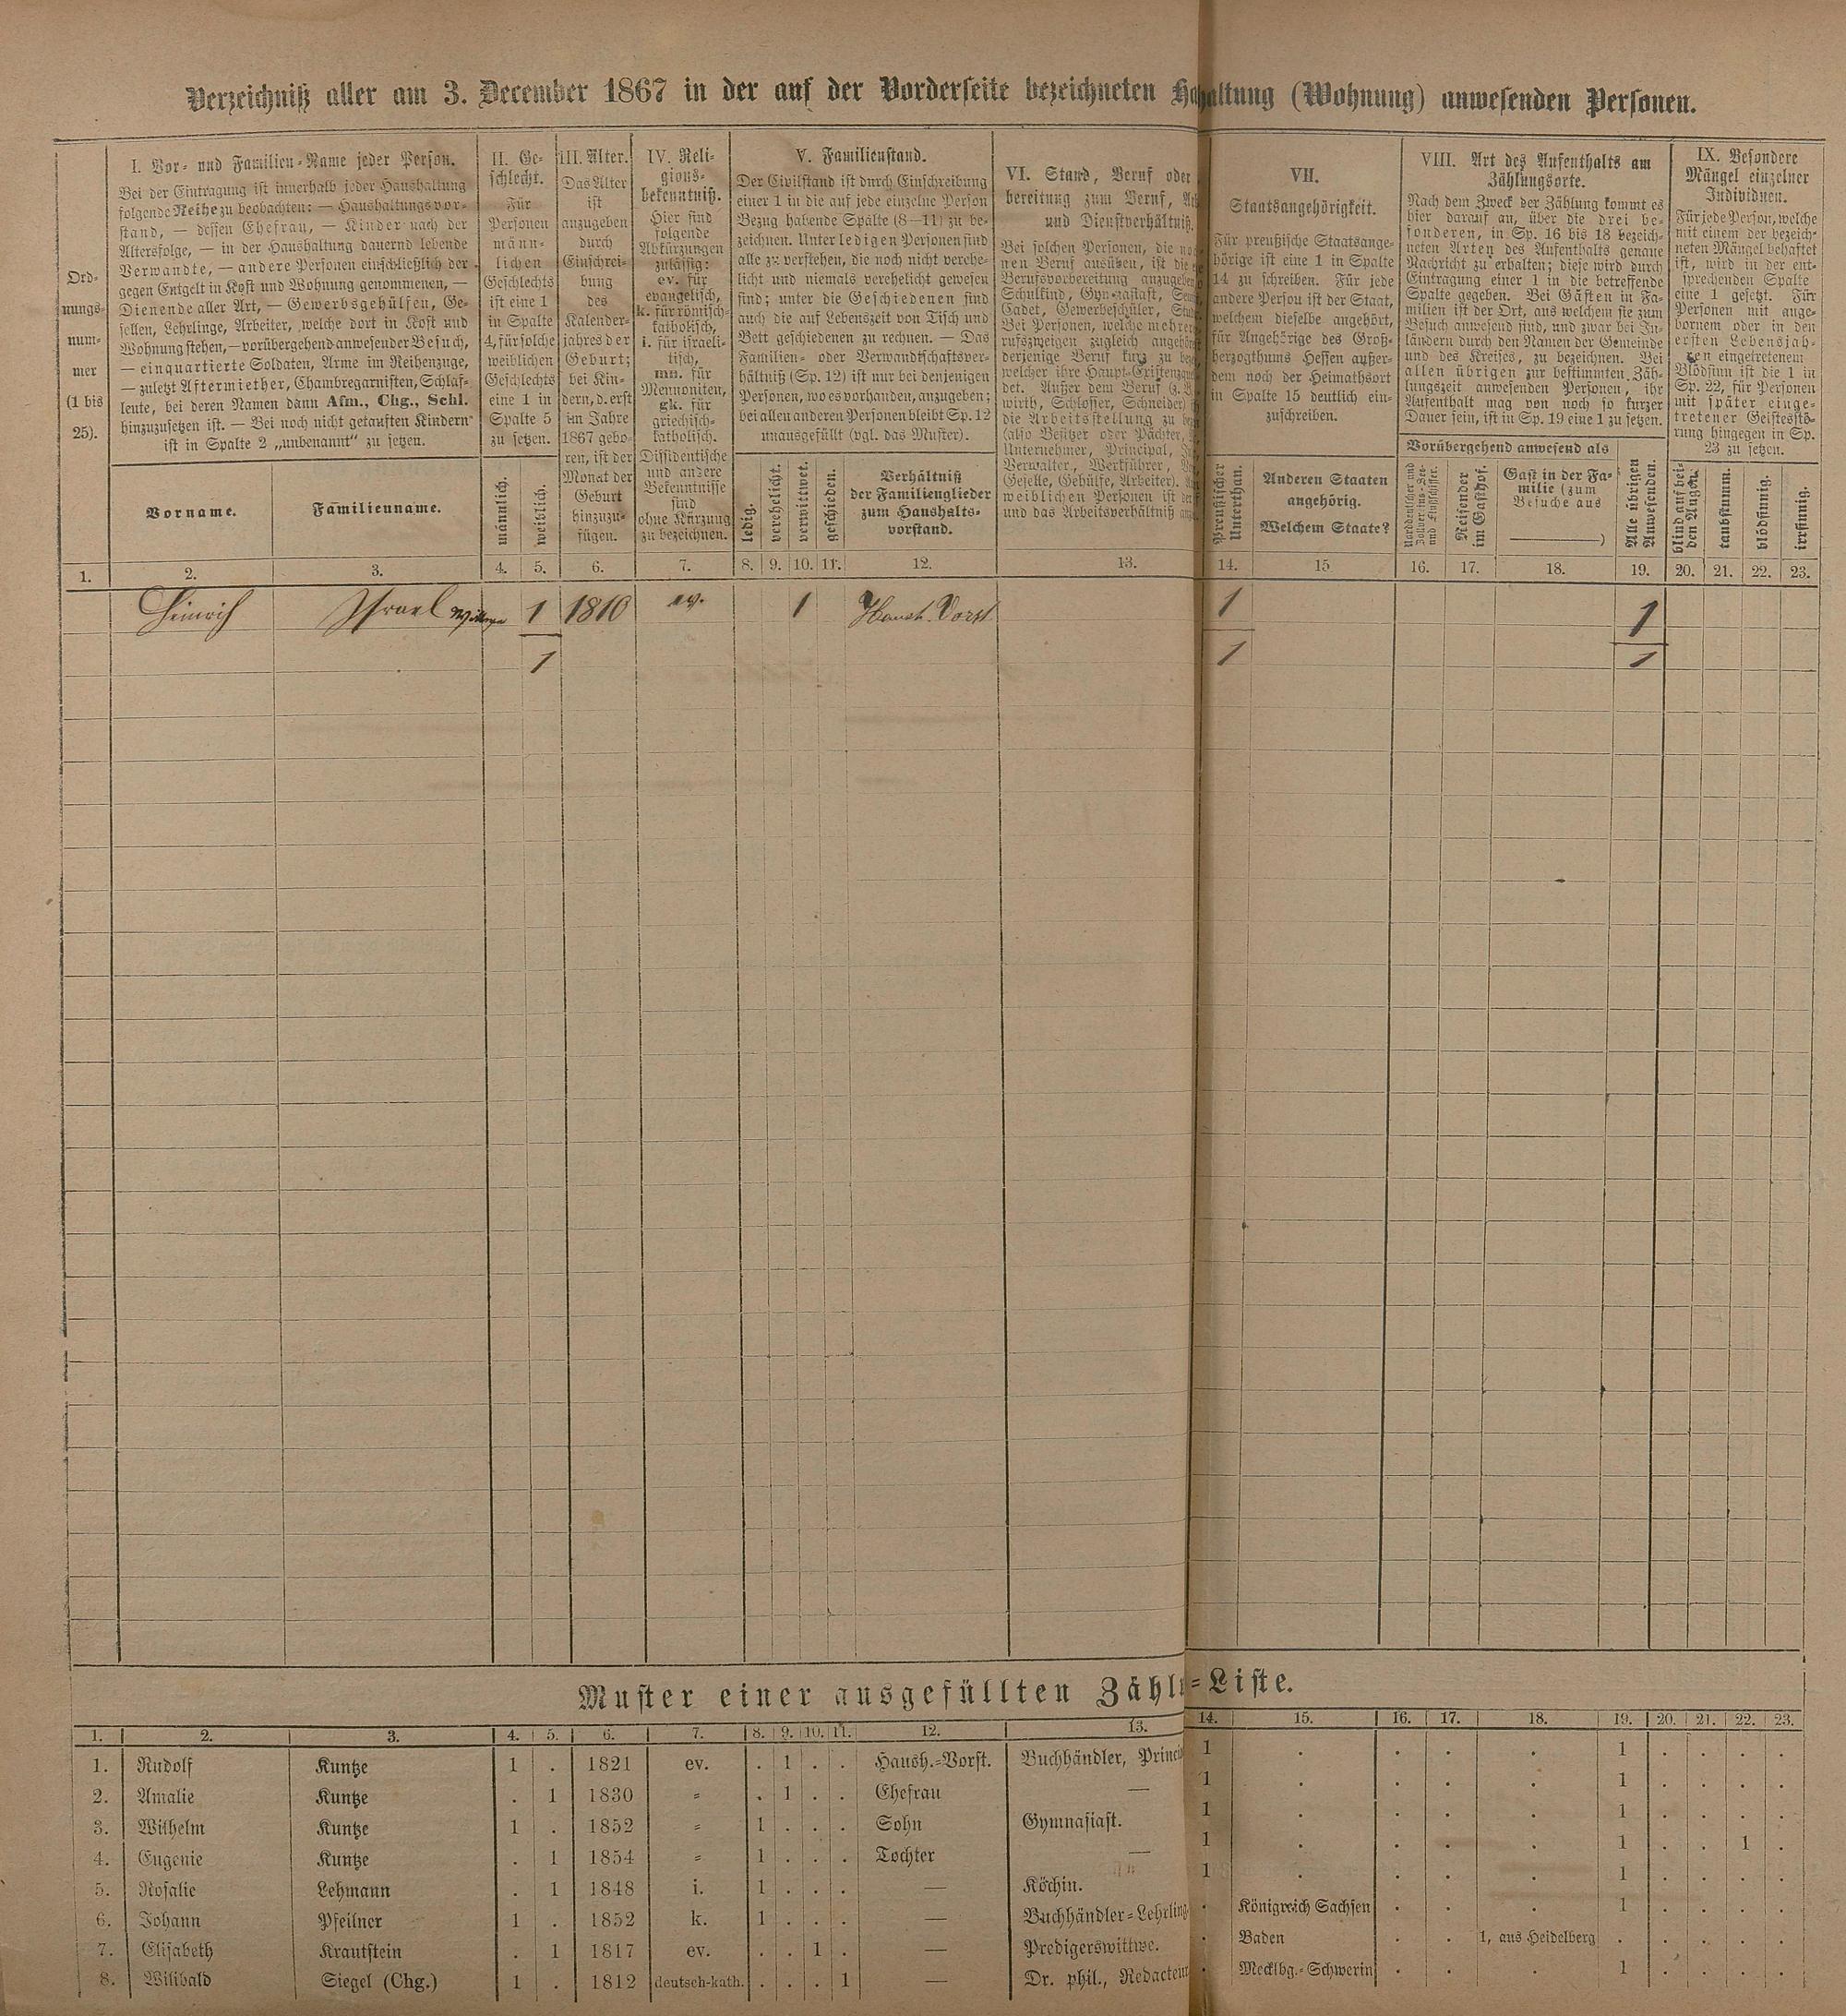 Verzeichniß aller am 3. December 1867 in der auf der Vorderseite bezeichneten Haushaltung (Wohnung) anwesenden Personen.
Ord-
nungs-
num-
mer
(1 bis
25).
I. Vor- und Familien-Name jeder Person.
Bei der Eintragung ist innerhalb jeder Haushaltung
folgende Reihe zu beobachten: — Haushaltungsvor-
stand, — dessen Ehefrau, — Kinder nach der
Altersfolge, — in der Haushaltung dauernd lebende
Verwandte, — andere Personen einschließlich der
gegen Entgelt in Kost und Wohnung genommenen, —
Dienende aller Art, — Gewerbsgehülfen, Ge-
sellen, Lehrlinge, Arbeiter, welche dort in Kost und
Wohnung stehen, — vorübergehend anwesender Besuch,
— einquartierte Soldaten, Arme im Reihenzuge,
— zuletzt Aftermiether, Chambregarnisten, Schlaf-
leute, bei deren Namen dann Afm., Chg., Schl.
hinzuzusetzen ist. — Bei noch nicht getauften Kindern
ist in Spalte 2 „unbenannt“ zu setzen.
Vorname.
Familienname.
II. Ge-
schlecht.
Für
Personen
männ-
lichen
Geschlechts
ist eine 1
in Spalte
4, für solche
weiblichen
Geschlechts
eine 1 in
Spalte 5
zu setzen.
männlich.
weiblich.
III. Alter.
Das Alter
ist
anzugeben
durch
Einschrei-
bung
des
Kalender-
jahres der
Geburt;
bei Kin-
dern, d. erst
im Jahre
1867 gebo-
ren, ist der
Monat der
Geburt
hinzuzu-
fügen.
IV. Reli-
gions-
bekenntniß.
Hier sind
folgende
Abkürzungen
zulässig:
ev. für
evangelisch,
k. für römisch-
katholisch,
i. für israeli-
tisch,
mn. für
Mennoniten,
gk. für
griechisch-
katholisch.
Dissidentische
und andere
Bekenntnisse
sind
ohne Kürzung
zu bezeichnen.
V. Familienstand.
Der Civilstand ist durch Einschreibung
einer 1 in die auf jede einzelne Person
Bezug habende Spalte (8—11) zu be-
zeichnen. Unter ledigen Personen sind
alle zu verstehen, die noch nicht verehe-
licht und niemals verehelicht gewesen
sind; unter die Geschiedenen sind
auch die auf Lebenszeit von Tisch und
Bett geschiedenen zu rechnen. — Das
Familien- oder Verwandtschaftsver-
hältniß (Sp. 12) ist nur bei denjenigen
Personen, wo es vorhanden, anzugeben;
bei allen anderen Personen bleibt Sp. 12
unausgefüllt (vgl. das Muster).
ledig.
verehelicht.
verwittwet.
geschieden.
Verhältniß
der Familienglieder
zum Haushalts-
vorstand.
VI. Stand, Beruf oder
bereitung zum Beruf,
und Dienstverhältniß.
Bei solchen Personen, die
nen Beruf ausüben, ist die
Berufsvorbereitung anzugeben
Schulkind, Gymnasiast,
Cadet, Gewerbeschüler,
Bei Personen, welche mehrere
rufszweigen zugleich angehören
derjenige Beruf kurz zu
welcher ihre Haupt-Existenz
det. Außer dem Beruf
wirth, Schlosser, Schneider)
die Arbeitsstellung zu
(also Besitzer oder Pächter,
Unternehmer, Principal,
Verwalter, Werkführer,
Geselle, Gehülfe, Arbeiter).
weiblichen Personen ist
und das Arbeitsverhältniß
VII.
Staatsangehörigkeit.
Für preußische Staatsange-
hörige ist eine 1 in Spalte
14 zu schreiben. Für jede
andere Person ist der Staat,
welchem dieselbe angehört,
für Angehörige des Groß-
herzogthums Hessen außer-
dem noch der Heimathsort
in Spalte 15 deutlich ein-
zuschreiben.
Preußischer
Unterthan.
Anderen Staaten
angehörig.
Welchem Staate?
VIII. Art des Aufenthalts am
Zählungsorte.
Nach dem Zweck der Zählung kommt es
hier darauf an, über die drei be-
sonderen, in Sp. 16 bis 18 bezeich-
neten Arten des Aufenthalts genaue
Nachricht zu erhalten; diese wird durch
Eintragung einer 1 in die betreffende
Spalte gegeben. Bei Gästen in Fa-
milien ist der Ort, aus welchem sie zum
Besuch anwesend sind, und zwar bei In-
ländern durch den Namen der Gemeinde
und des Kreises, zu bezeichnen. Bei
allen übrigen zur bestimmten Zäh-
lungszeit anwesenden Personen, ihr
Aufenthalt mag von noch so kurzer
Dauer sein, ist in Sp. 19 eine 1 zu setzen.
Vorübergehend anwesend als
Norddeutscher und
Zollvereins-See-
und Flußschiffer.
Reisender
im Gasthof.
Gast in der Fa-
milie (zum
Besuche aus
)
Alle übrigen
Anwesenden.
IX. Besondere
Mängel einzelner
Individuen.
Für jede Person, welche
mit einem der bezeich-
neten Mängel behaftet
ist, wird in der ent-
sprechenden Spalte
eine 1 gesetzt. Für
Personen mit ange-
bornem oder in den
ersten Lebensjah-
ren eingetretenem
Blödsinn ist die 1 in
Sp. 22, für Personen
mit später einge-
tretener Geistesstö-
rung hingegen in Sp.
23 zu setzen.
blind auf bei-
den Augen.
taubstumm.
blödsinnig.
irrsinnig.
1. 2. 3. 4. 5. 6. 7. 8. 9. 10. 11. 12. 13. 14. 15 16. 17. 18. 19. 20. 21. 22. 23.
Hinrich Israel 1 1810 ev. 1 Haush. Vorst 1 1
1 1 1
Muster einer ausgefüllten Zähl-Liste.
1. 2. 3. 4. 5. 6. 7. 8. 9. 10. 11. 12. 13. 14. 15. 16. 17. 18. 19. 20. 21. 22. 23.
1. Rudolf Kuntze 1 . 1821 ev. . 1 . . Haush.-Vorst. Buchhändler, Princi 1 . . . . 1 . . . .
2. Amalie Kuntze . 1 1830 = . 1 . . Ehefrau — 1 . . . . 1 . . . .
3. Wilhelm Kuntze 1 . 1852 = 1 . . . Sohn Gymnasiast. 1 . . . . 1 . . . .
4. Eugenie Kuntze . 1 1854 = 1 . . . Tochter — 1 . . . . 1 . . 1 .
5. Rosalie Lehmann . 1 1848 i. 1 . . . — Köchin. 1 . . . . 1 . . . .
6. Johann Pfeilner 1 . 1852 k. 1 . . . — Buchhändler-Lehrling . Königreich Sachsen . . . 1 . . . .
7. Elisabeth Krautstein . 1 1817 ev. . . 1 . — Predigerswittwe. . Baden . . 1, aus Heidelberg . . . . .
8. Wilibald Siegel (Chg.) 1 . 1812 deutsch-kath. . . . 1 — Dr. phil., Redacteur . Mecklbg.-Schwerin . . . 1 . . . .